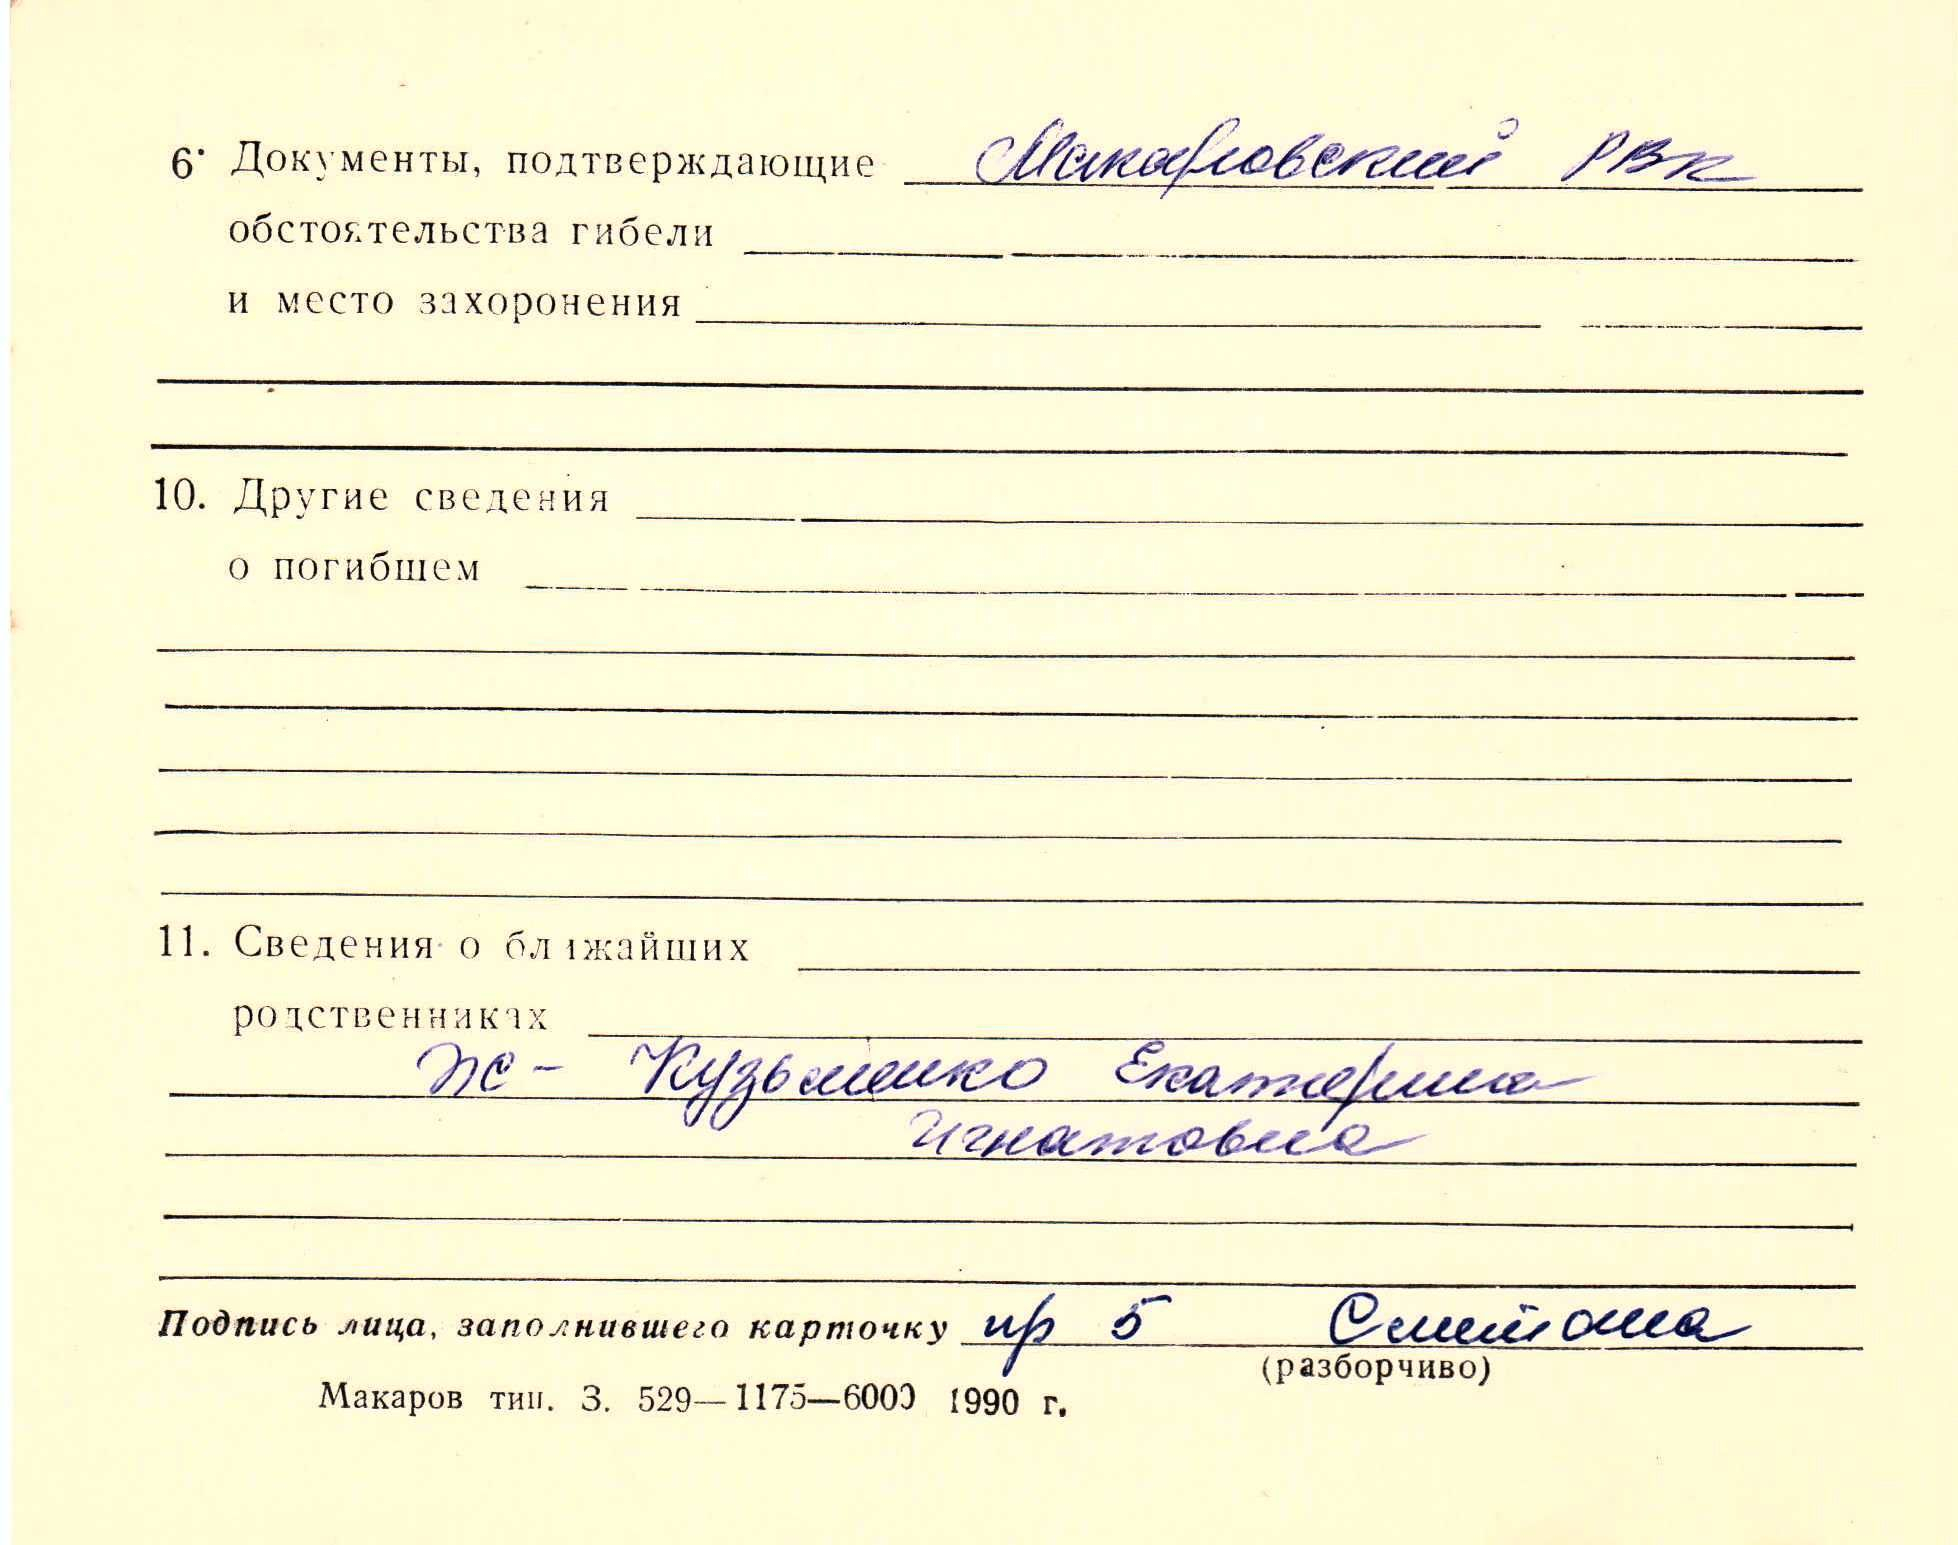 6. Документы, подтверждающие Макаровский РВК
обстоятельства гибели
и место захоронения
10. Другие сведения
о погибшем
11. Сведения о ближайших
родственниках
ж - Кузьменко Екатерина
Игнатовна
Подпись лица, заполнившего карточку пр 5
(разборчиво)
Макаров тип. З. 529—1175—6000 1990 г.